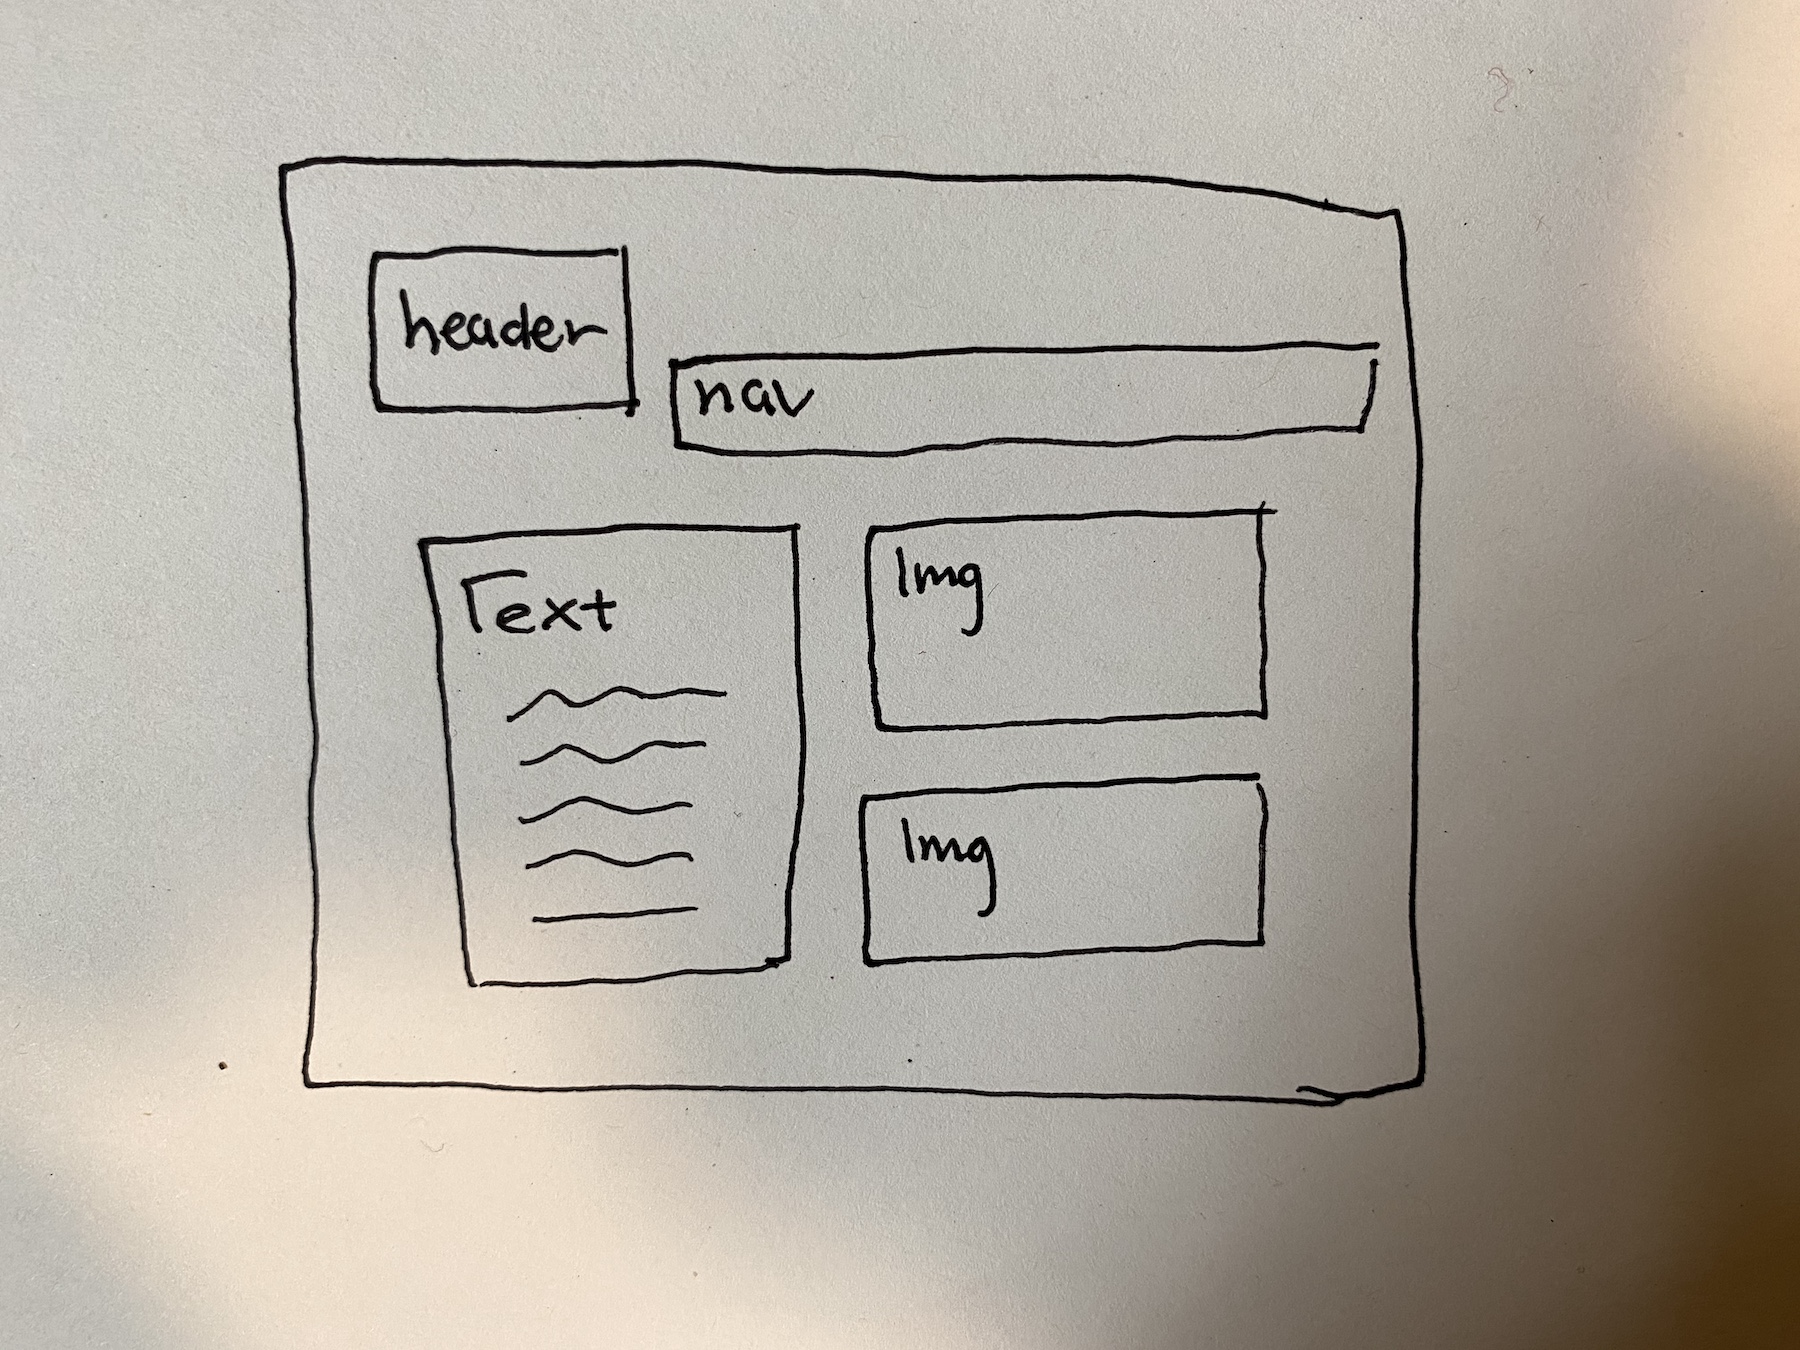 header
nav
Text
Img
Img